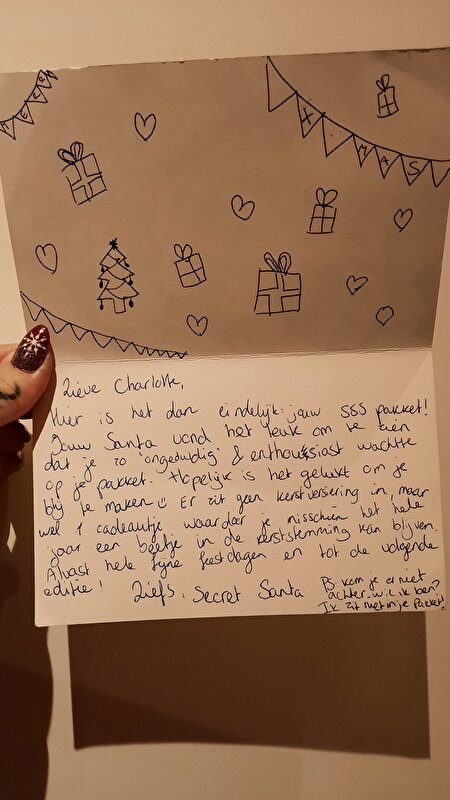 MERRY
X-MAS
Lieve Charlotte,
Hier is het dan eindelijk: jouw SSS pakket!
Jouw Santa vond het leuk om te zien
dat je zo 'ongeduldig' & enthousiast wachtte
op je pakket. Hopelijk is het gelukt om je
blij te maken Er zit geen kerstversiering in, maar
wel 1 cadeautje waardoor je misschien het hele
jaar een beetje in de kerststemming kan blijven.
Alvast hele fijne feestdagen en tot de volgende
editie!
Liefs, Secret Santa
PS kom je er niet
achter w.i.e ik ben?
Ik zit niet in je pakket!